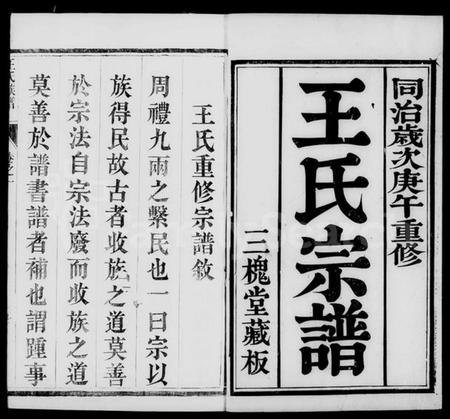 同治歲次庚午重修
王氏宗譜
三槐堂藏板
王氏重修宗譜敘
周禮九兩之繫民也一曰宗以
族得民故古者收族之道莫善
於宗法自宗法廢而收族之道
莫善於譜書譜者補也謂踵事
王氏宗譜
卷之一